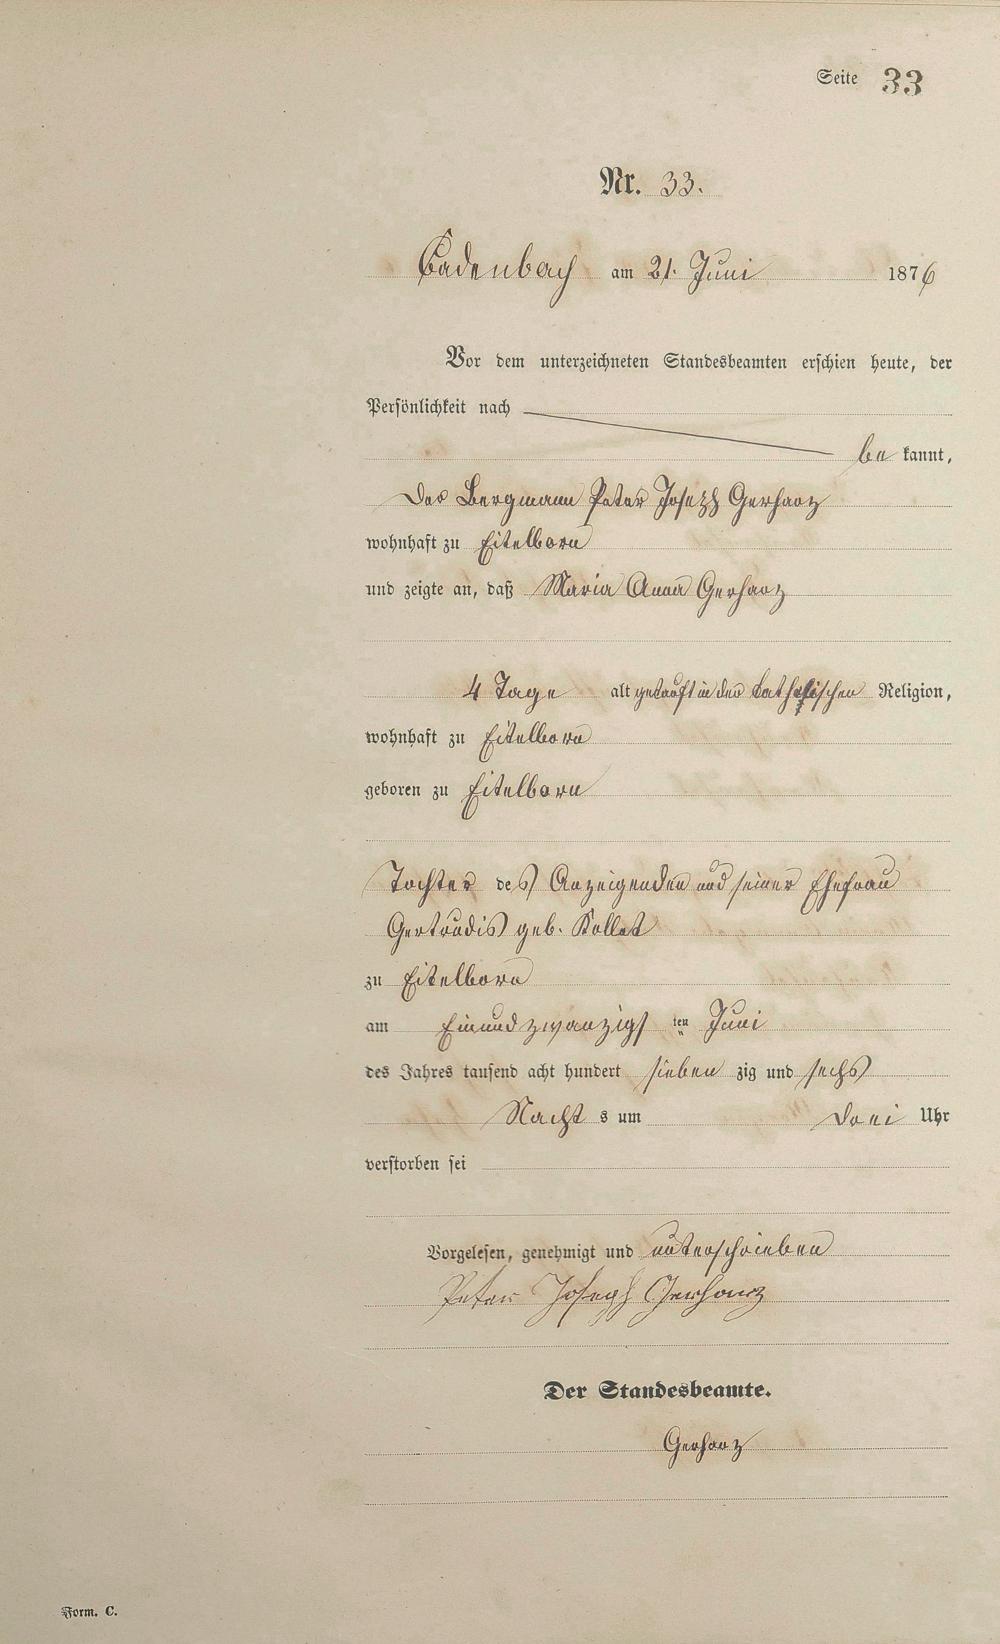 Seite 33
Nr. 33.
Cadenbach am 21. Juni 1876
Vor dem unterzeichneten Standesbeamten erschien heute, der
Persönlichkeit nach
be kannt,
Der Bergmann Peter Joseph Gerharz
wohnhaft zu Eitelborn
und zeigte an, daß Maria Anna Gerharz
4 Tage alt getauft in der katholischen Religion,
wohnhaft zu Eitelborn
geboren zu Eitelborn
Tochter des Anzeigenden und seiner Ehefrau
Gertrudis geb. Kollet
zu Eitelborn
am Einundzwanzigs ten Juni
des Jahres tausend acht hundert sieben zig und sechs
Nacht s um drei Uhr
verstorben sei
Vorgelesen, genehmigt und unterschrieben
Peter Joseph Gerharz
Der Standesbeamte.
Gerharz
Form. C.